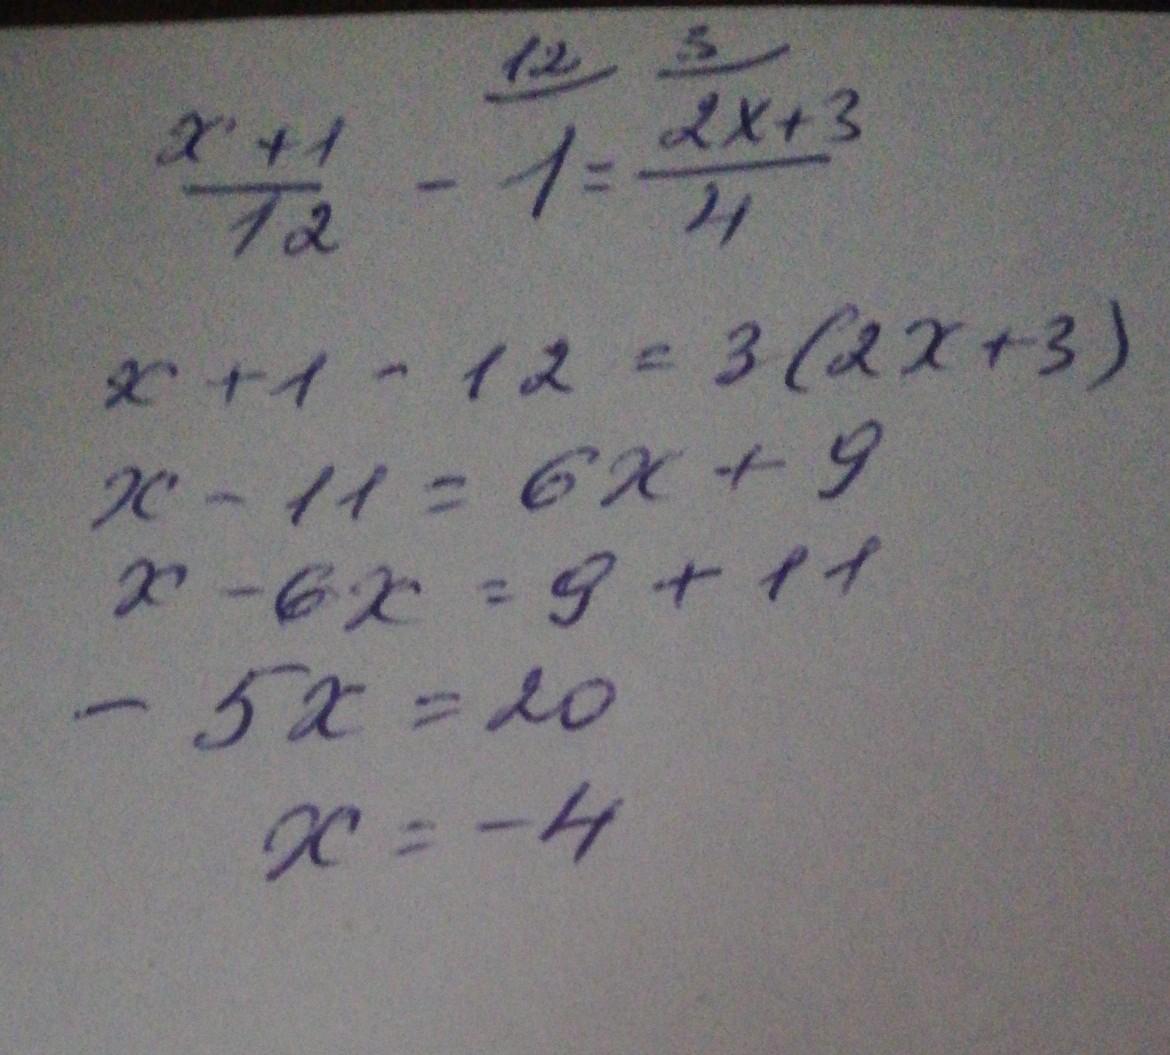 12 3
x+1/12 - 1 = 2x+3/4
x + 1 - 12 = 3(2x+3)
x - 11 = 6x + 9
x - 6x = 9 + 11
- 5x = 20
x = -4